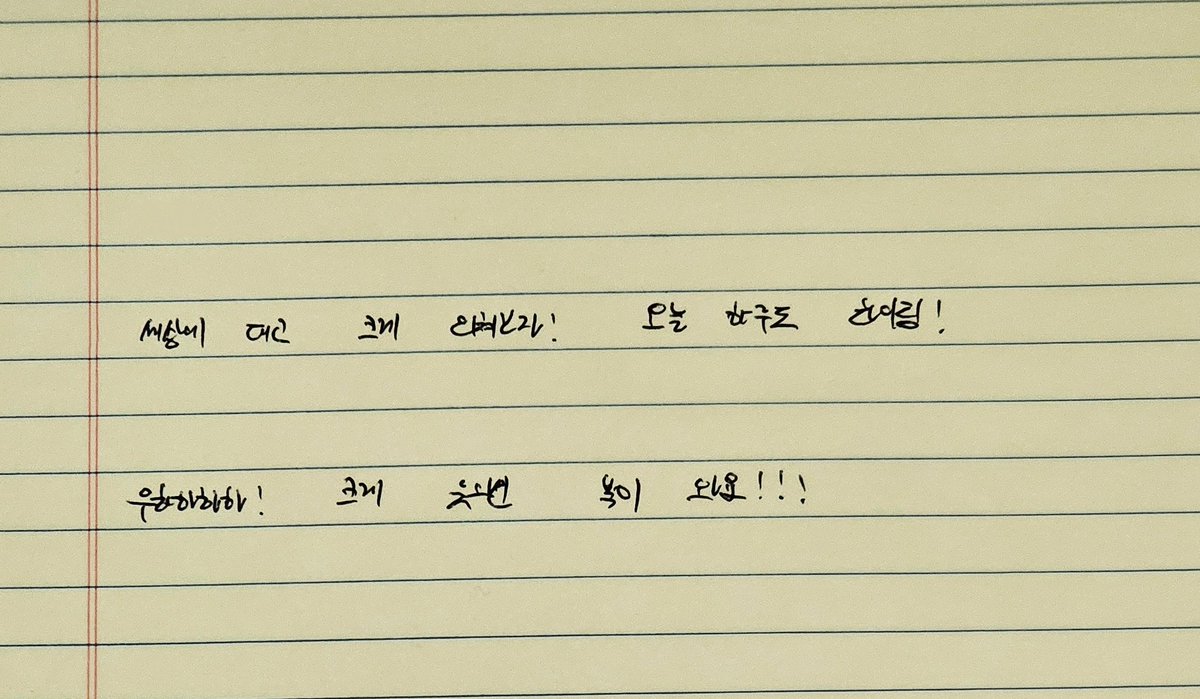 세상에 대고 크게 외쳐보자! 오늘 하루도 한아름!
우하하하하! 크게 웃으면 복이 와요!!!